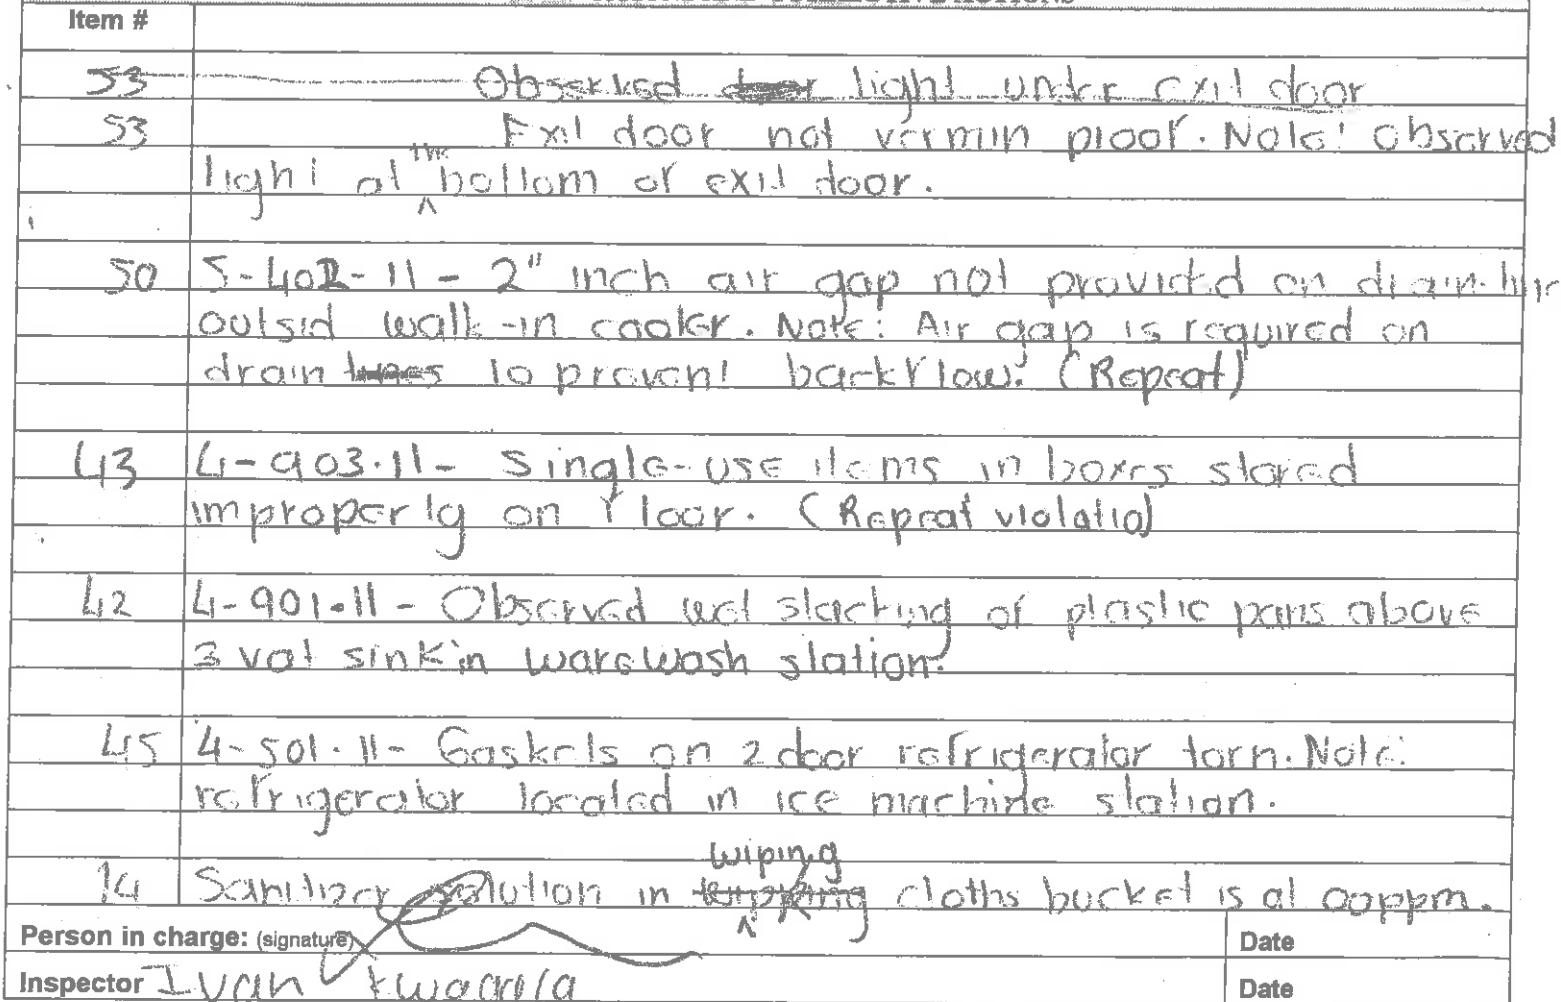 Item #
53 Observed light under exit door
53 Exit door not vermin proof. Note: observed
light at the bottom of exit door.
50 5-402-11 - 2" inch air gap not provided on drain-line
outsid walk-in cooler. Note: Air gap is required on
drain to prevent backflow. (Repeat)
43 4-903.11- Single-use items in boxes stored
improperly on floor. (Repeat violatio)
42 4-901.11 - Observed wet stacking of plastic pans above
3 vat sink in warewash station.
45 4-501.11- Gaskets on 2 door refrigerator torn. Note:
refrigerator located in ice machine station.
14 Sanitizer solution in wiping cloths bucket is at 00ppm.
Person in charge: (signature) Date
Inspector Ivan Date